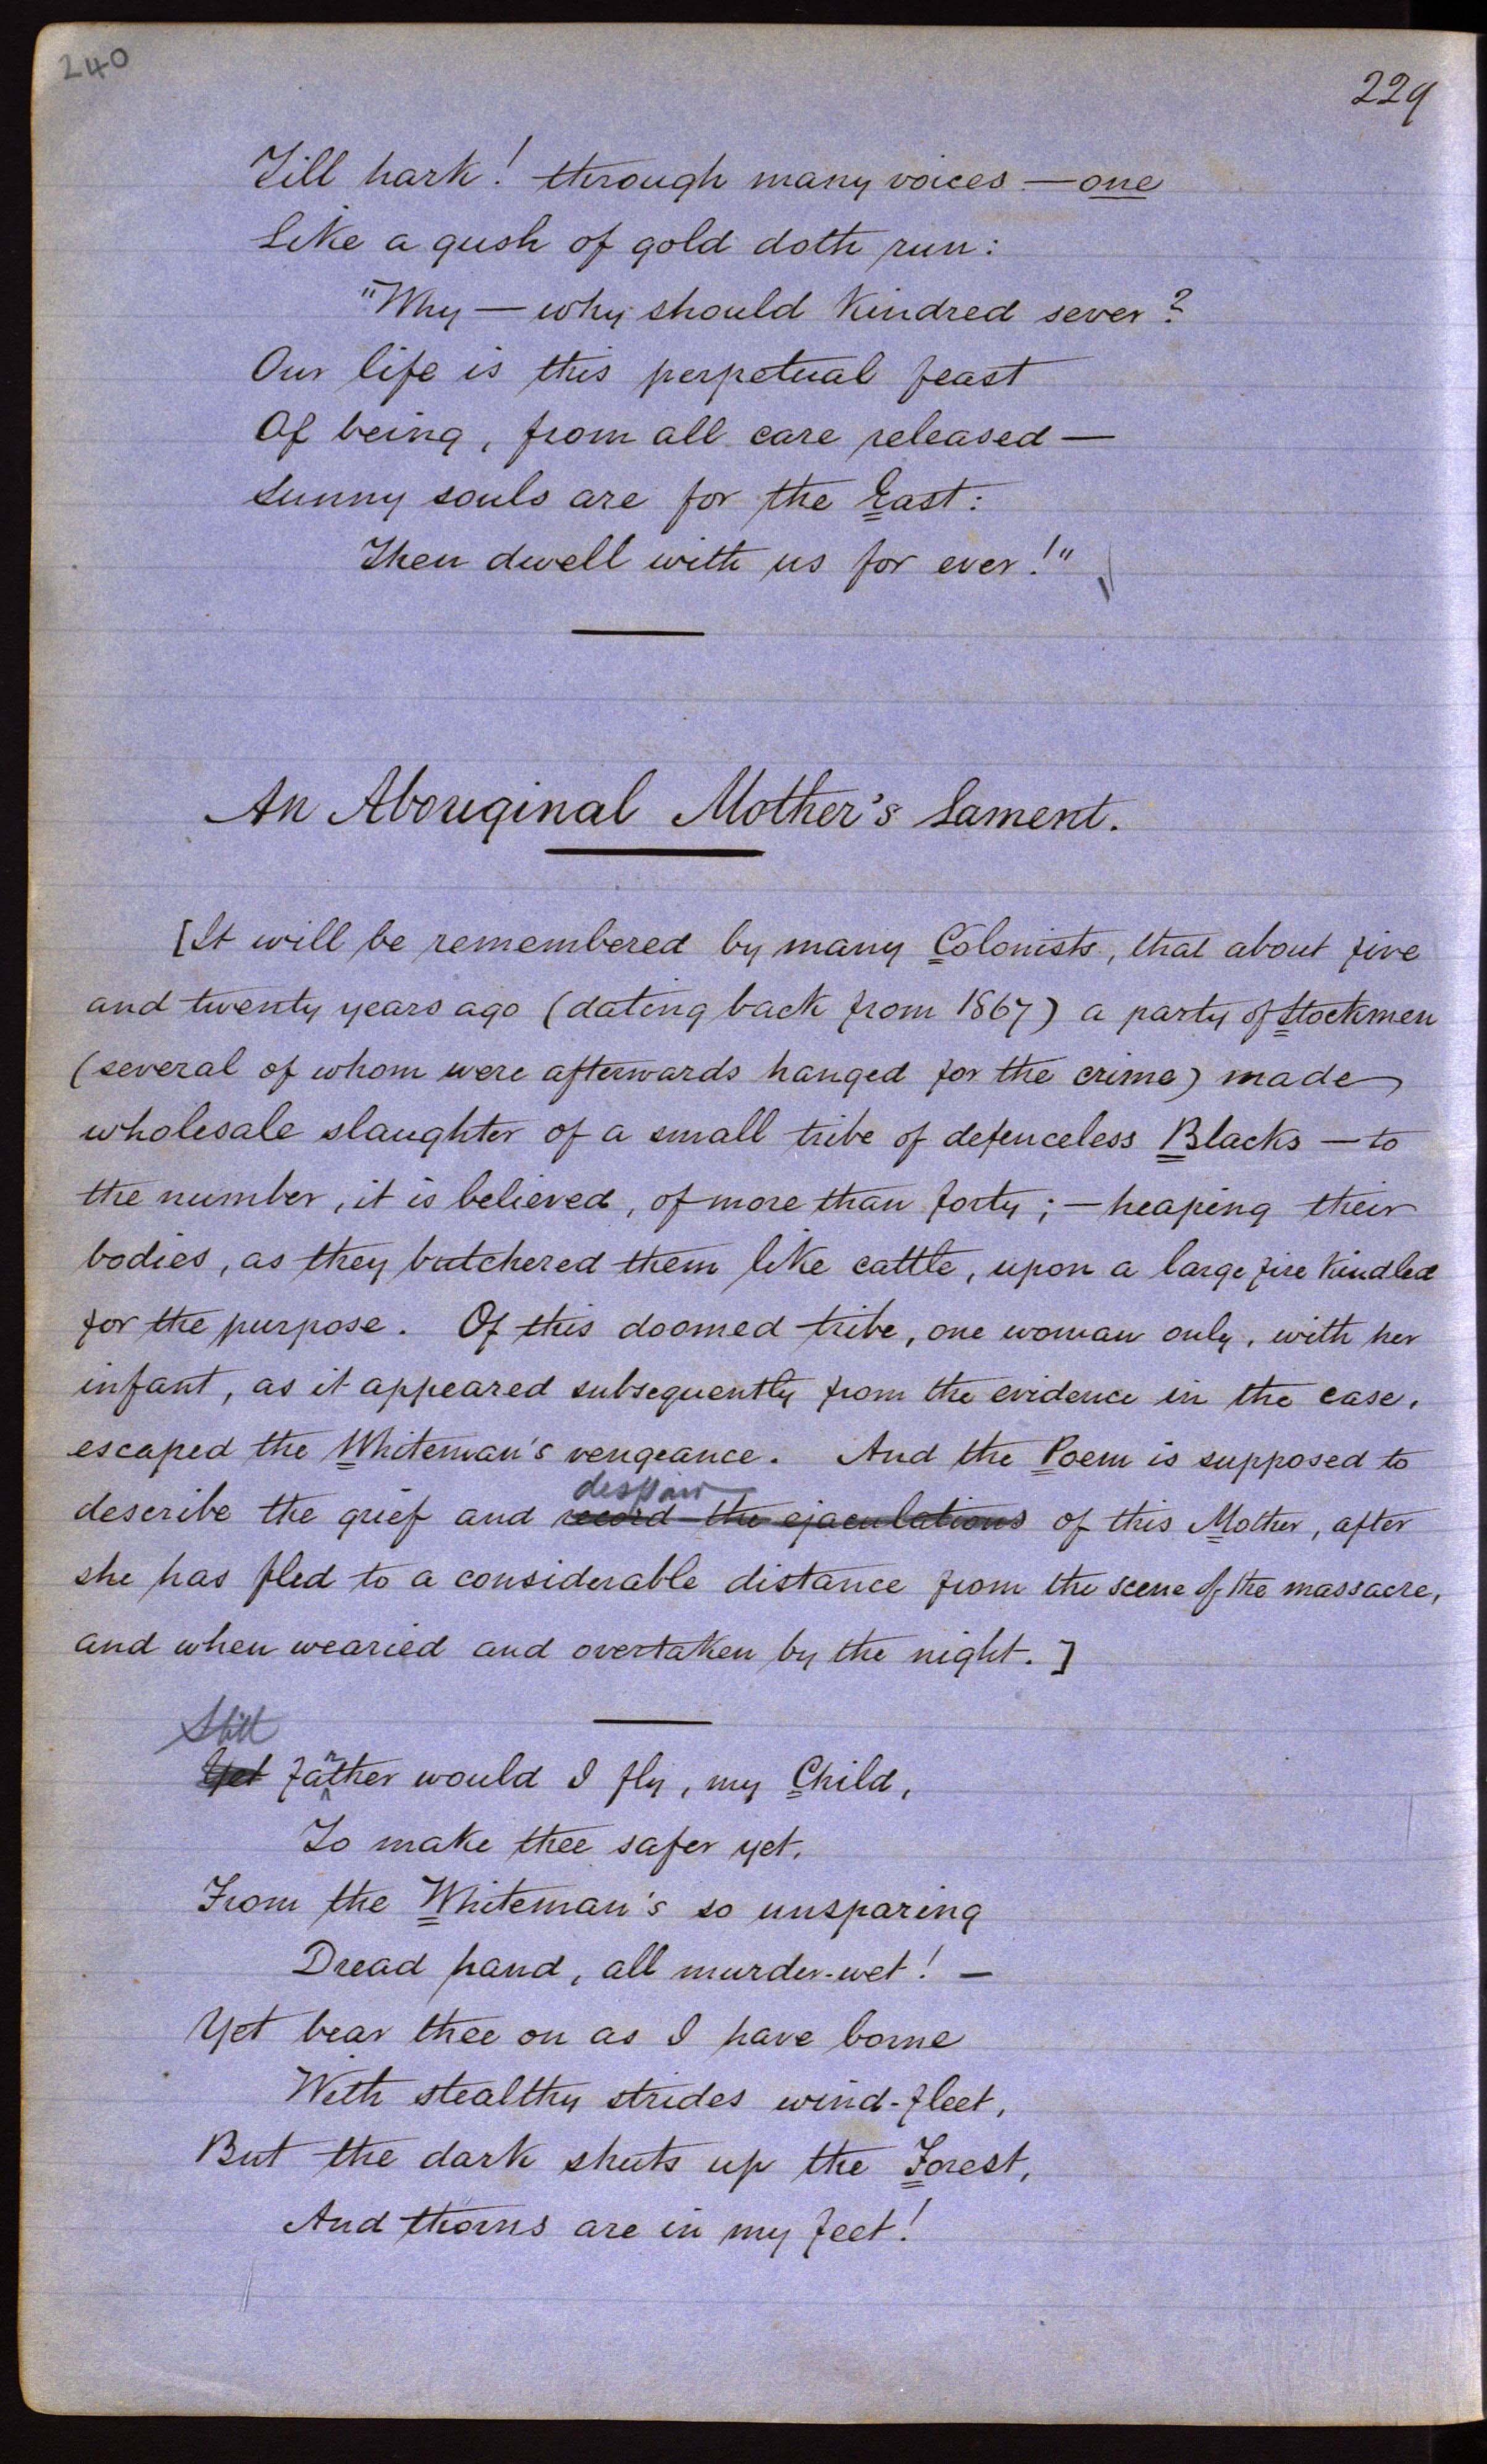 240
229
Till hark! through many voices — one
Like a gush of gold doth run:
"Why — why should kindred sever?
Our life is this perpetual feast
Of being, from all care released —
Sunny souls are for the East:
Then dwell with us for ever!"
An Aboriginal Mother's Lament.
[It will be remembered by many Colonists, that about five
and twenty years ago (dating back from 1867) a party of Stockmen
(several of whom were afterwards hanged for the crime) made
wholesale slaughter of a small tribe of defenceless Blacks — to
the number, it is believed, of more than forty; — heaping their
bodies, as they butchered them like cattle, upon a large fire kindled
for the purpose. Of this doomed tribe, one woman only, with her
infant, as it appeared subsequently from the evidence in the case,
escaped the Whiteman's vengeance. And the Poem is supposed to
despair
describe the grief and record the ejaculations of this Mother, after
she has fled to a considerable distance from the scene of the massacre,
and when wearied and overtaken by the night.]
Still
Yet farther would I fly, my Child,
To make thee safer yet,
From the Whiteman's so unsparing
Dread hand, all murder-wet! —
Yet bear thee on as I have borne
With stealthy strides wind-fleet,
But the dark shuts up the Forest,
And thorns are in my feet!